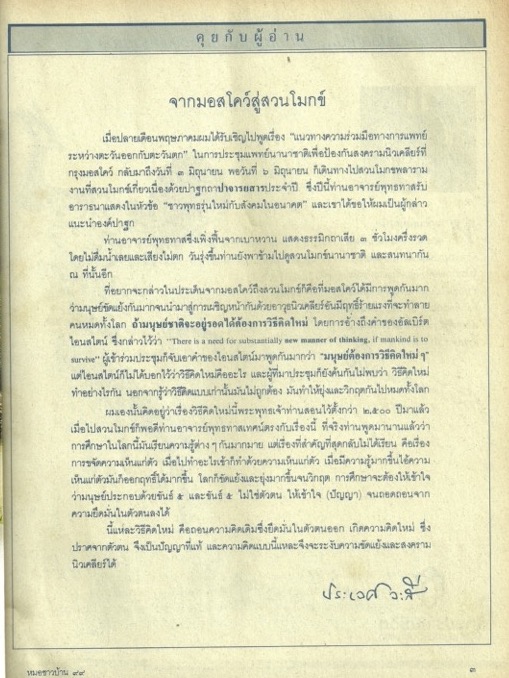 คุยกับผู้อ่าน
จากมอสโคว์สู่สวนโมกข์
เมื่อปลายเดือนพฤษภาคมผมได้รับเชิญไปพูดเรื่อง "แนวทางความร่วมมือทางการแพทย์
ระหว่างตะวันออกกับตะวันตก" ในการประชุมแพทย์นานาชาติเพื่อป้องกันสงครามนิวเคลียร์ที่
กรุงมอสโคว์ กลับมาถึงวันที่ ๓ มิถุนายน พอวันที่ ๖ มิถุนายน ก็เดินทางไปสวนโมกขพลาราม
งานที่สวนโมกข์เกี่ยวเนื่องด้วยปาฐกถาปาจารยสารประจำปี ซึ่งปีนี้ท่านอาจารย์พุทธทาสรับ
อาราธนาแสดงในหัวข้อ "ชาวพุทธรุ่นใหม่กับสังคมในอนาคต" และเขาได้ขอให้ผมเป็นผู้กล่าว
แนะนำองค์ปาฐก
ท่านอาจารย์พุทธทาสซึ่งเพิ่งฟื้นจากเบาหวาน แสดงธรรมิกถาเสีย ๓ ชั่วโมงครึ่งรวด
โดยไม่ดื่มน้ำเลยและเสียงไม่ตก วันรุ่งขึ้นท่านยังพาข้ามไปดูสวนโมกข์นานาชาติ และสนทนากัน
ณ ที่นั้นอีก
ที่อยากจะกล่าวในประเด็นจากมอสโคว์ถึงสวนโมกข์ก็คือที่มอสโคว์ได้มีการพูดกันมาก
ว่ามนุษย์ขัดแย้งกันมากจนนำมาสู่การเผชิญหน้ากันด้วยอาวุธนิวเคลียร์อันมีฤทธิ์ร้ายแรงที่จะทำลาย
คนหมดทั้งโลก ถ้ามนุษยชาติจะอยู่รอดได้ต้องการวิธีคิดใหม่ โดยการอ้างถึงคำของอัลเบิร์ต
ไอนสไตน์ ซึ่งกล่าวไว้ว่า "There is a need for substantially new manner of thinking, if mankind is to
survive" ผู้เข้าร่วมประชุมก็จับเอาคำของไอนสไตน์มาพูดกันมากว่า "มนุษย์ต้องการวิธีคิดใหม่ ๆ"
แต่ไอนสไตน์ก็ไม่ได้บอกไว้ว่าวิธีคิดใหม่คืออะไร และผู้ที่มาประชุมก็ยังค้นกันไม่พบว่า วิธีคิดใหม่
ทำอย่างไรกัน นอกจากรู้ว่าวิธีคิดแบบเก่านั้นมันไม่ถูกต้อง มันทำให้ยุ่งและวิกฤตกันไปหมดทั้งโลก
ผมเองนั้นคิดอยู่ว่าเรื่องวิธีคิดใหม่นี้พระพุทธเจ้าท่านสอนไว้ตั้งกว่า ๒,๕๐๐ ปีมาแล้ว
เมื่อไปสวนโมกข์ก็พอดีท่านอาจารย์พุทธทาสเทศน์ตรงกับเรื่องนี้ ที่จริงท่านพูดมานานแล้วว่า
การศึกษาในโลกนี้มันเรียนความรู้ต่าง ๆ กันมากมาย แต่เรื่องที่สำคัญที่สุดกลับไม่ได้เรียน คือเรื่อง
การขจัดความเห็นแก่ตัว เมื่อไปทำอะไรเข้าก็ทำด้วยความเห็นแก่ตัว เมื่อมีความรู้มากขึ้นไอ้ความ
เห็นแก่ตัวมันก็ออกฤทธิ์ได้มากขึ้น โลกก็ขัดแย้งและยุ่งมากขึ้นจนวิกฤต การศึกษาจะต้องให้เข้าใจ
ว่ามนุษย์ประกอบด้วยขันธ์ ๕ และขันธ์ ๕ ไม่ใช่ตัวตน ให้เข้าใจ (ปัญญา) จนถอดถอนจาก
ความยึดมั่นในตัวตนลงได้
นี่แหละวิธีคิดใหม่ คือถอนความคิดเดิมซึ่งยึดมั่นในตัวตนออก เกิดความคิดใหม่ ซึ่ง
ปราศจากตัวตน จึงเป็นปัญญาที่แท้ และความคิดแบบนี้แหละจึงจะระงับความขัดแย้งและสงคราม
นิวเคลียร์ได้
ประเวศ วะสี
หมอชาวบ้าน ๙๙
๓